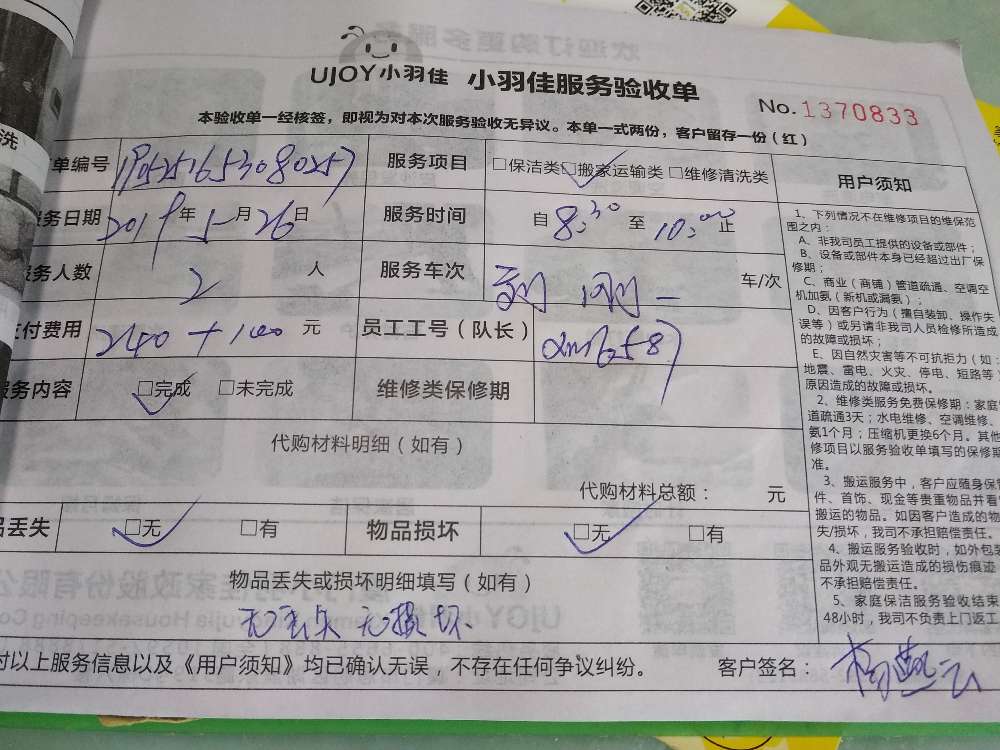 洗
UJOY小羽佳 小羽佳服务验收单
No. 1370833
本验收单一经核签，即视为对本次服务验收无异议。本单一式两份，客户留存一份（红）
单编号 服务项目 □保洁类□搬家运输类 □维修清洗类 用户须知
服务日期 2019年5月26日 服务时间 自8:30至10:00止
服务人数 2人 服务车次 车/次
支付费用 240+100元 员工工号（队长）
服务内容 □完成 □未完成 维修类保修期
代购材料明细（如有）
代购材料总额： 元
品丢失 □无 □有 物品损坏 □无 □有
物品丢失或损坏明细填写（如有）
无丢失 无损坏
对以上服务信息以及《用户须知》均已确认无误，不存在任何争议纠纷。 客户签名：
1、下列情况不在维修项目的维保范
围之内：
A、非我司员工提供的设备或部件；
B、设备或部件本身已经超过出厂保
修期；
C、商业（商铺）管道疏通、空调空
机加氨（新机或漏氨）；
D、因客户行为（擅自装卸、操作失
误等）或另请非我司人员检修所造成
的故障或损坏；
E、因自然灾害等不可抗拒力（如：
地震、雷电、火灾、停电、短路等）
原因造成的故障或损坏。
2、维修类服务免费保修期：家庭
道疏通3天；水电维修、空调维修、
氨1个月；压缩机更换6个月。其他
修项目以服务验收单填写的保修期
准。
3、搬运服务中，客户应随身保管
件、首饰、现金等贵重物品并看
搬运的物品。如因客户造成的物
失/损坏，我司不承担赔偿责任。
4、搬运服务验收时，如外包装
品外观无搬运造成的损伤痕迹
不承担赔偿责任。
5、家庭保洁服务验收结束
48小时，我司不负责上门返工